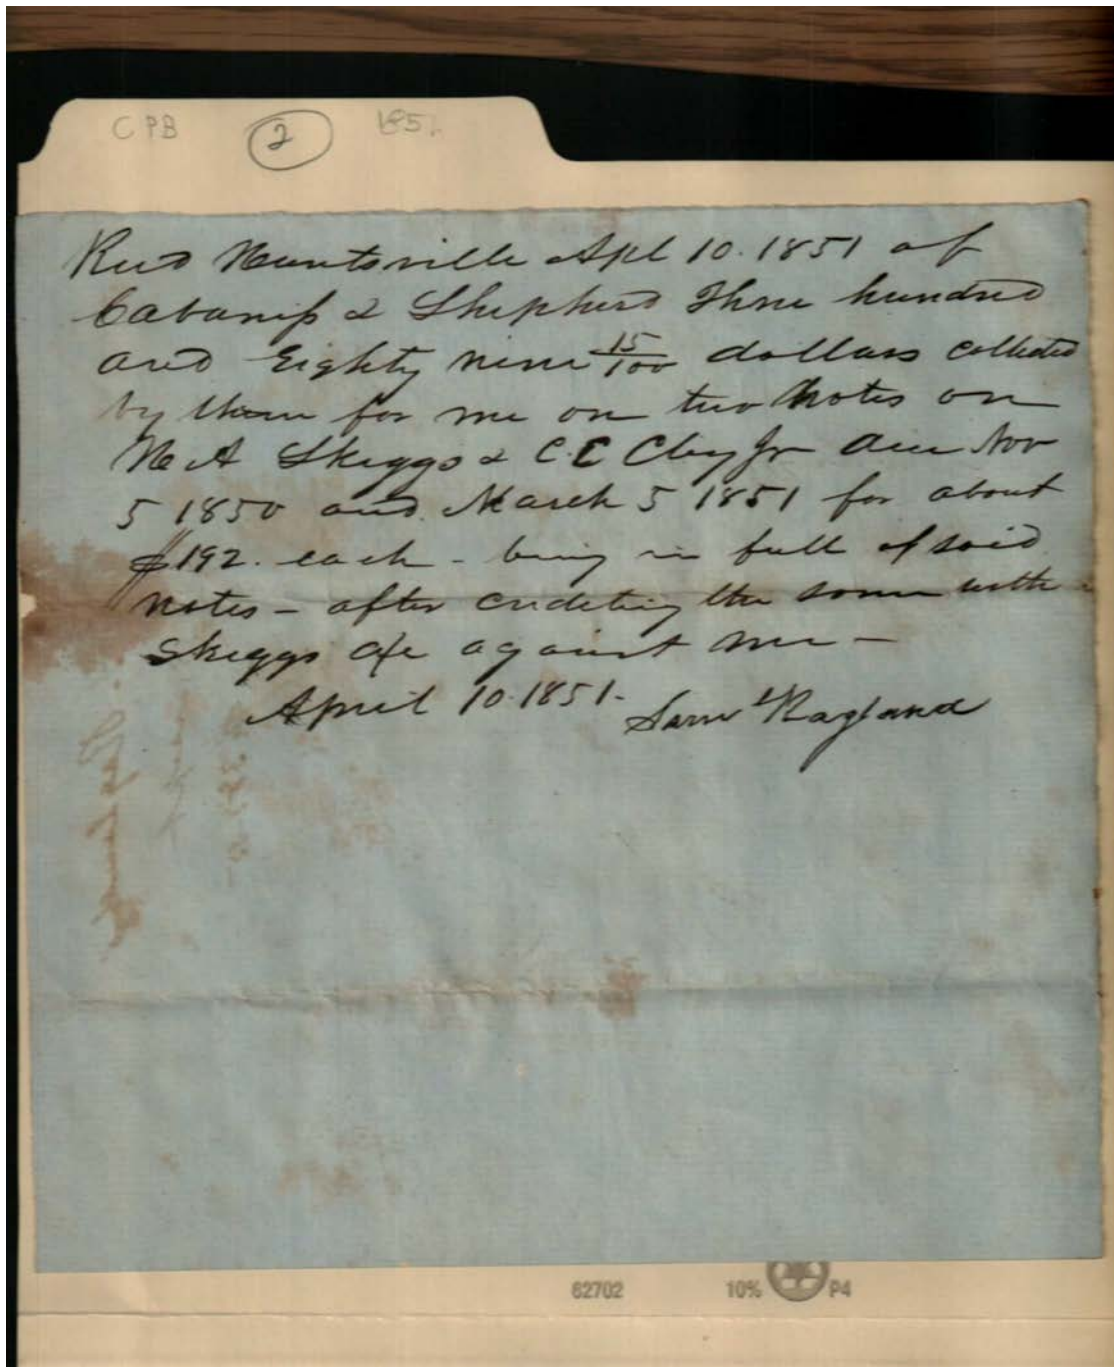 CPB 2 1851
Recd Huntsville Apl 10. 1851 of
Cabaniss & Shepherd Three hundred
and Eighty nine 15/100 dollars collected
by them for me on two Notes on
W A Skeggs & C. C Clay Jr due Nov
5 1850 and March 5 1851 for about
$192. each - being in full of said
notes - after crediting the same with
Skeggs a/c against me -
April 10. 1851. Saml Ragland
62702 10% P4